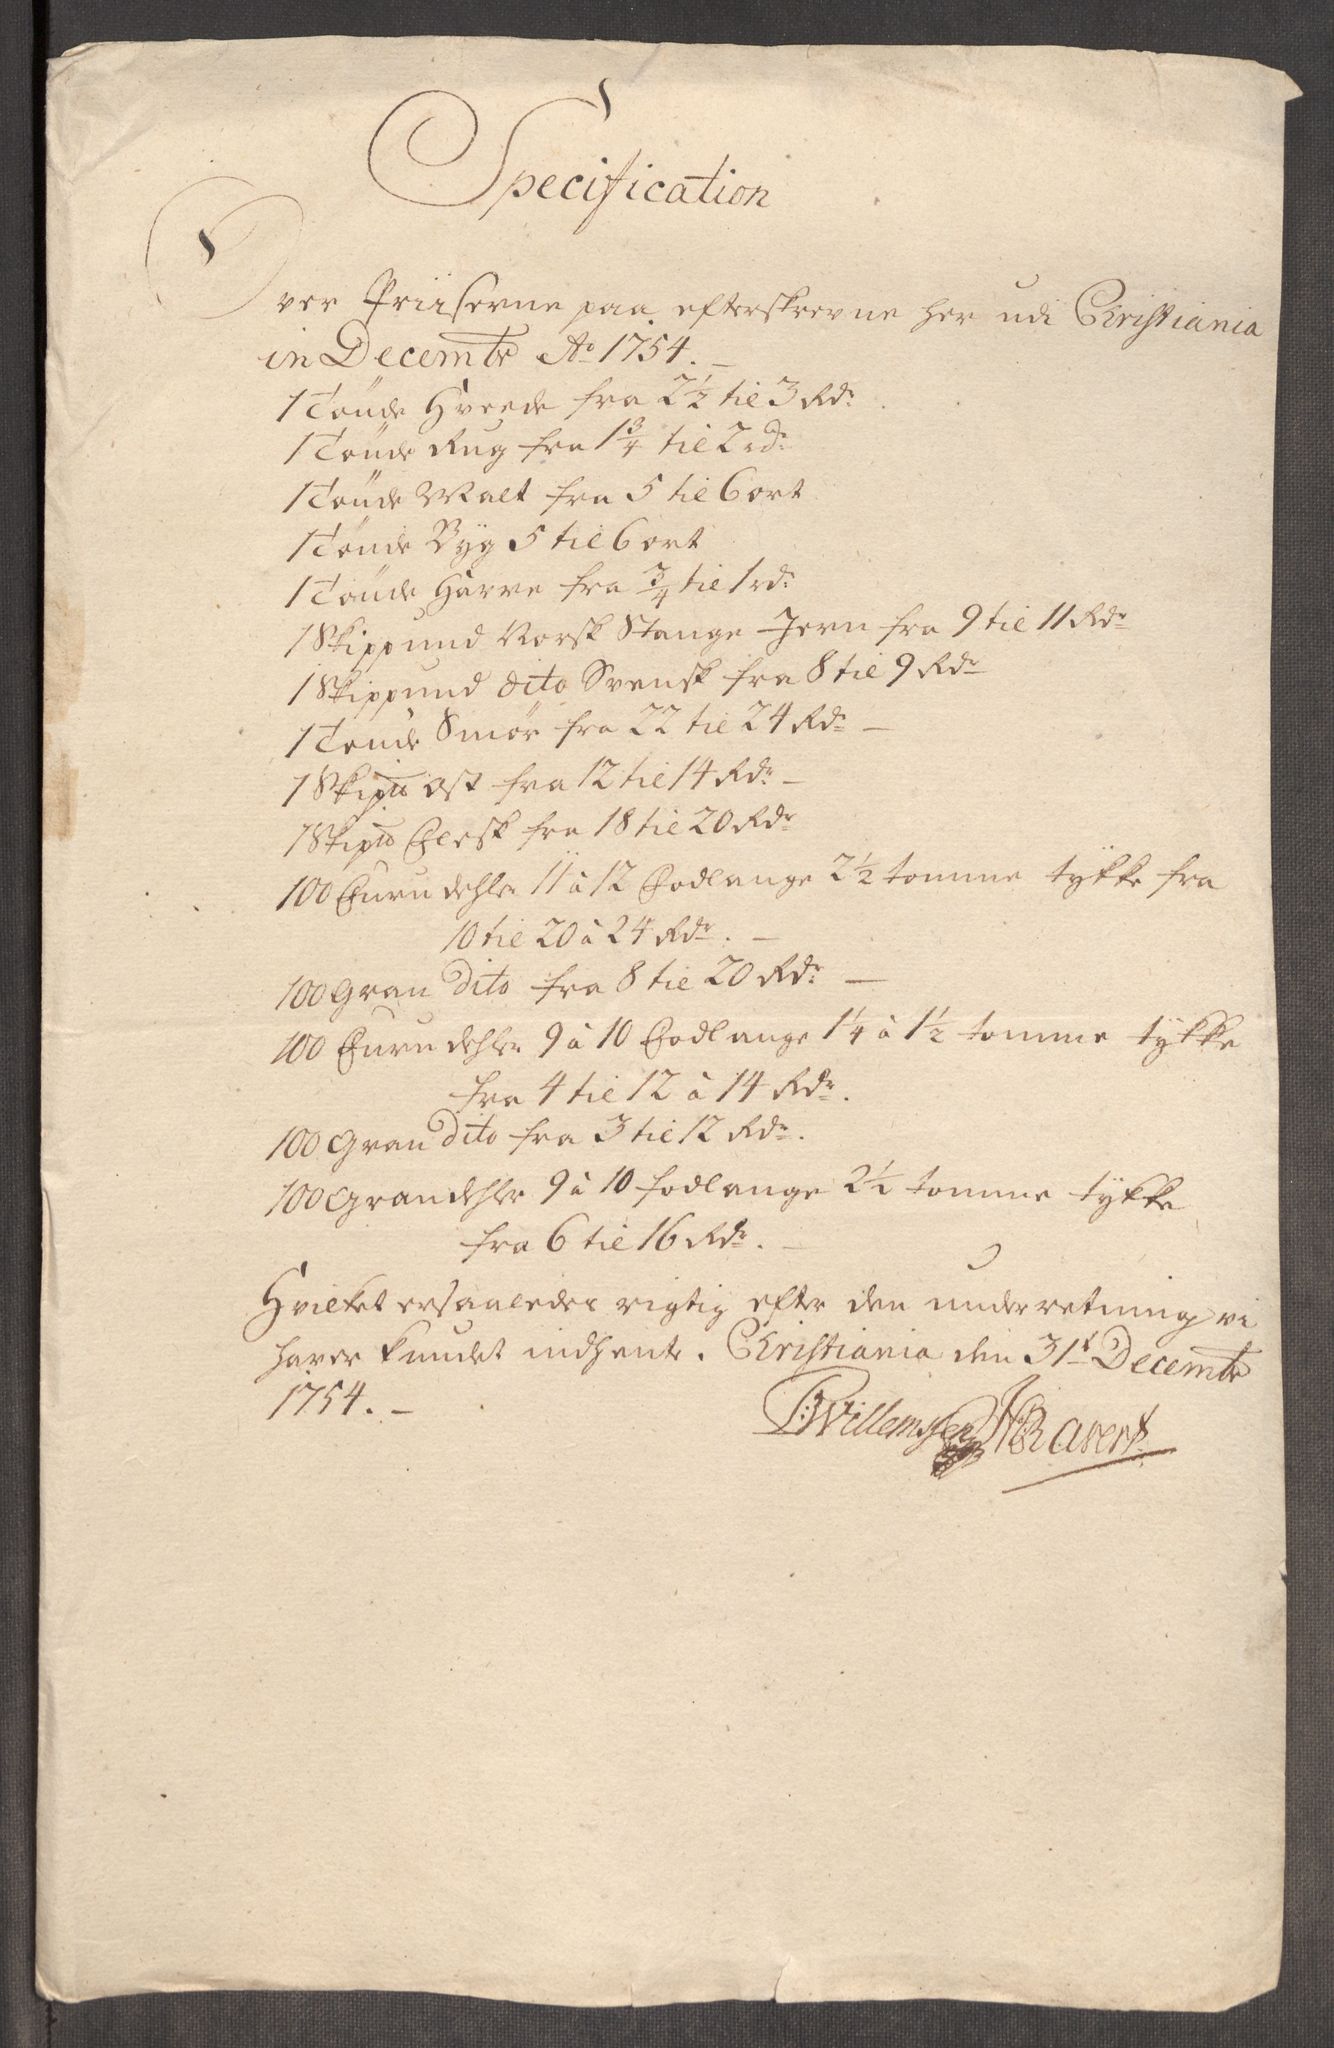 Specification
Over Priiserne paa efterskrevne her udi Christiania
in Decembr Ao 1754. —
1 Tönde Hveede fra 2½ til 3 Rdr
1 Tönde Rug fra 1¾ til 2 rdr
1 Tönde Malt fra 5 til 6 ort
1 Tönde Byg 5 til 6 ort
1 Tönde Havre fra ¾ til 1 rdr
1 Skippund Norsk Stange Jern fra 9 til 11 Rdr
1 Skippund dito Svensk fra 8 til 9 Rdr
1 Tönde Smör fra 22 til 24 Rdr —
1 Skip℔ Ost fra 12 til 14 Rdr —
1 Skip℔ Flesk fra 18 til 20 Rdr
100 Furu dehler 11 à 12 Fodlange 2½ tomme tykke fra
10 til 20 à 24 Rdr. —
100 Gran dito fra 8 til 20 Rdr —
100 Furu dehler 9 à 10 Fodlange 1¼ à 1½ tomme tykke
fra 4 til 12 à 14 Rdr.
100 Gran dito fra 3 til 12 Rdr.
100 Grandehler 9 à 10 fodlange 2½ tomme tykke
fra 6 til 16 Rdr. —
Hvilket er saaledes rigtig efter den underretning vi
haver kundet indhente. Christiania den 31t Decembr
1754. —
Willemssen Ravert